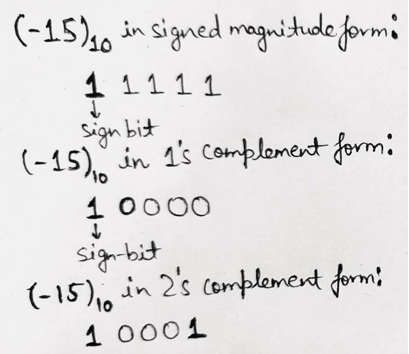 (-15)₁₀ in signed magnitude form:
1 1 1 1 1
↓
sign bit
(-15)₁₀ in 1's complement form:
1 0000
↓
sign-bit
(-15)₁₀ in 2's complement form:
1 0001